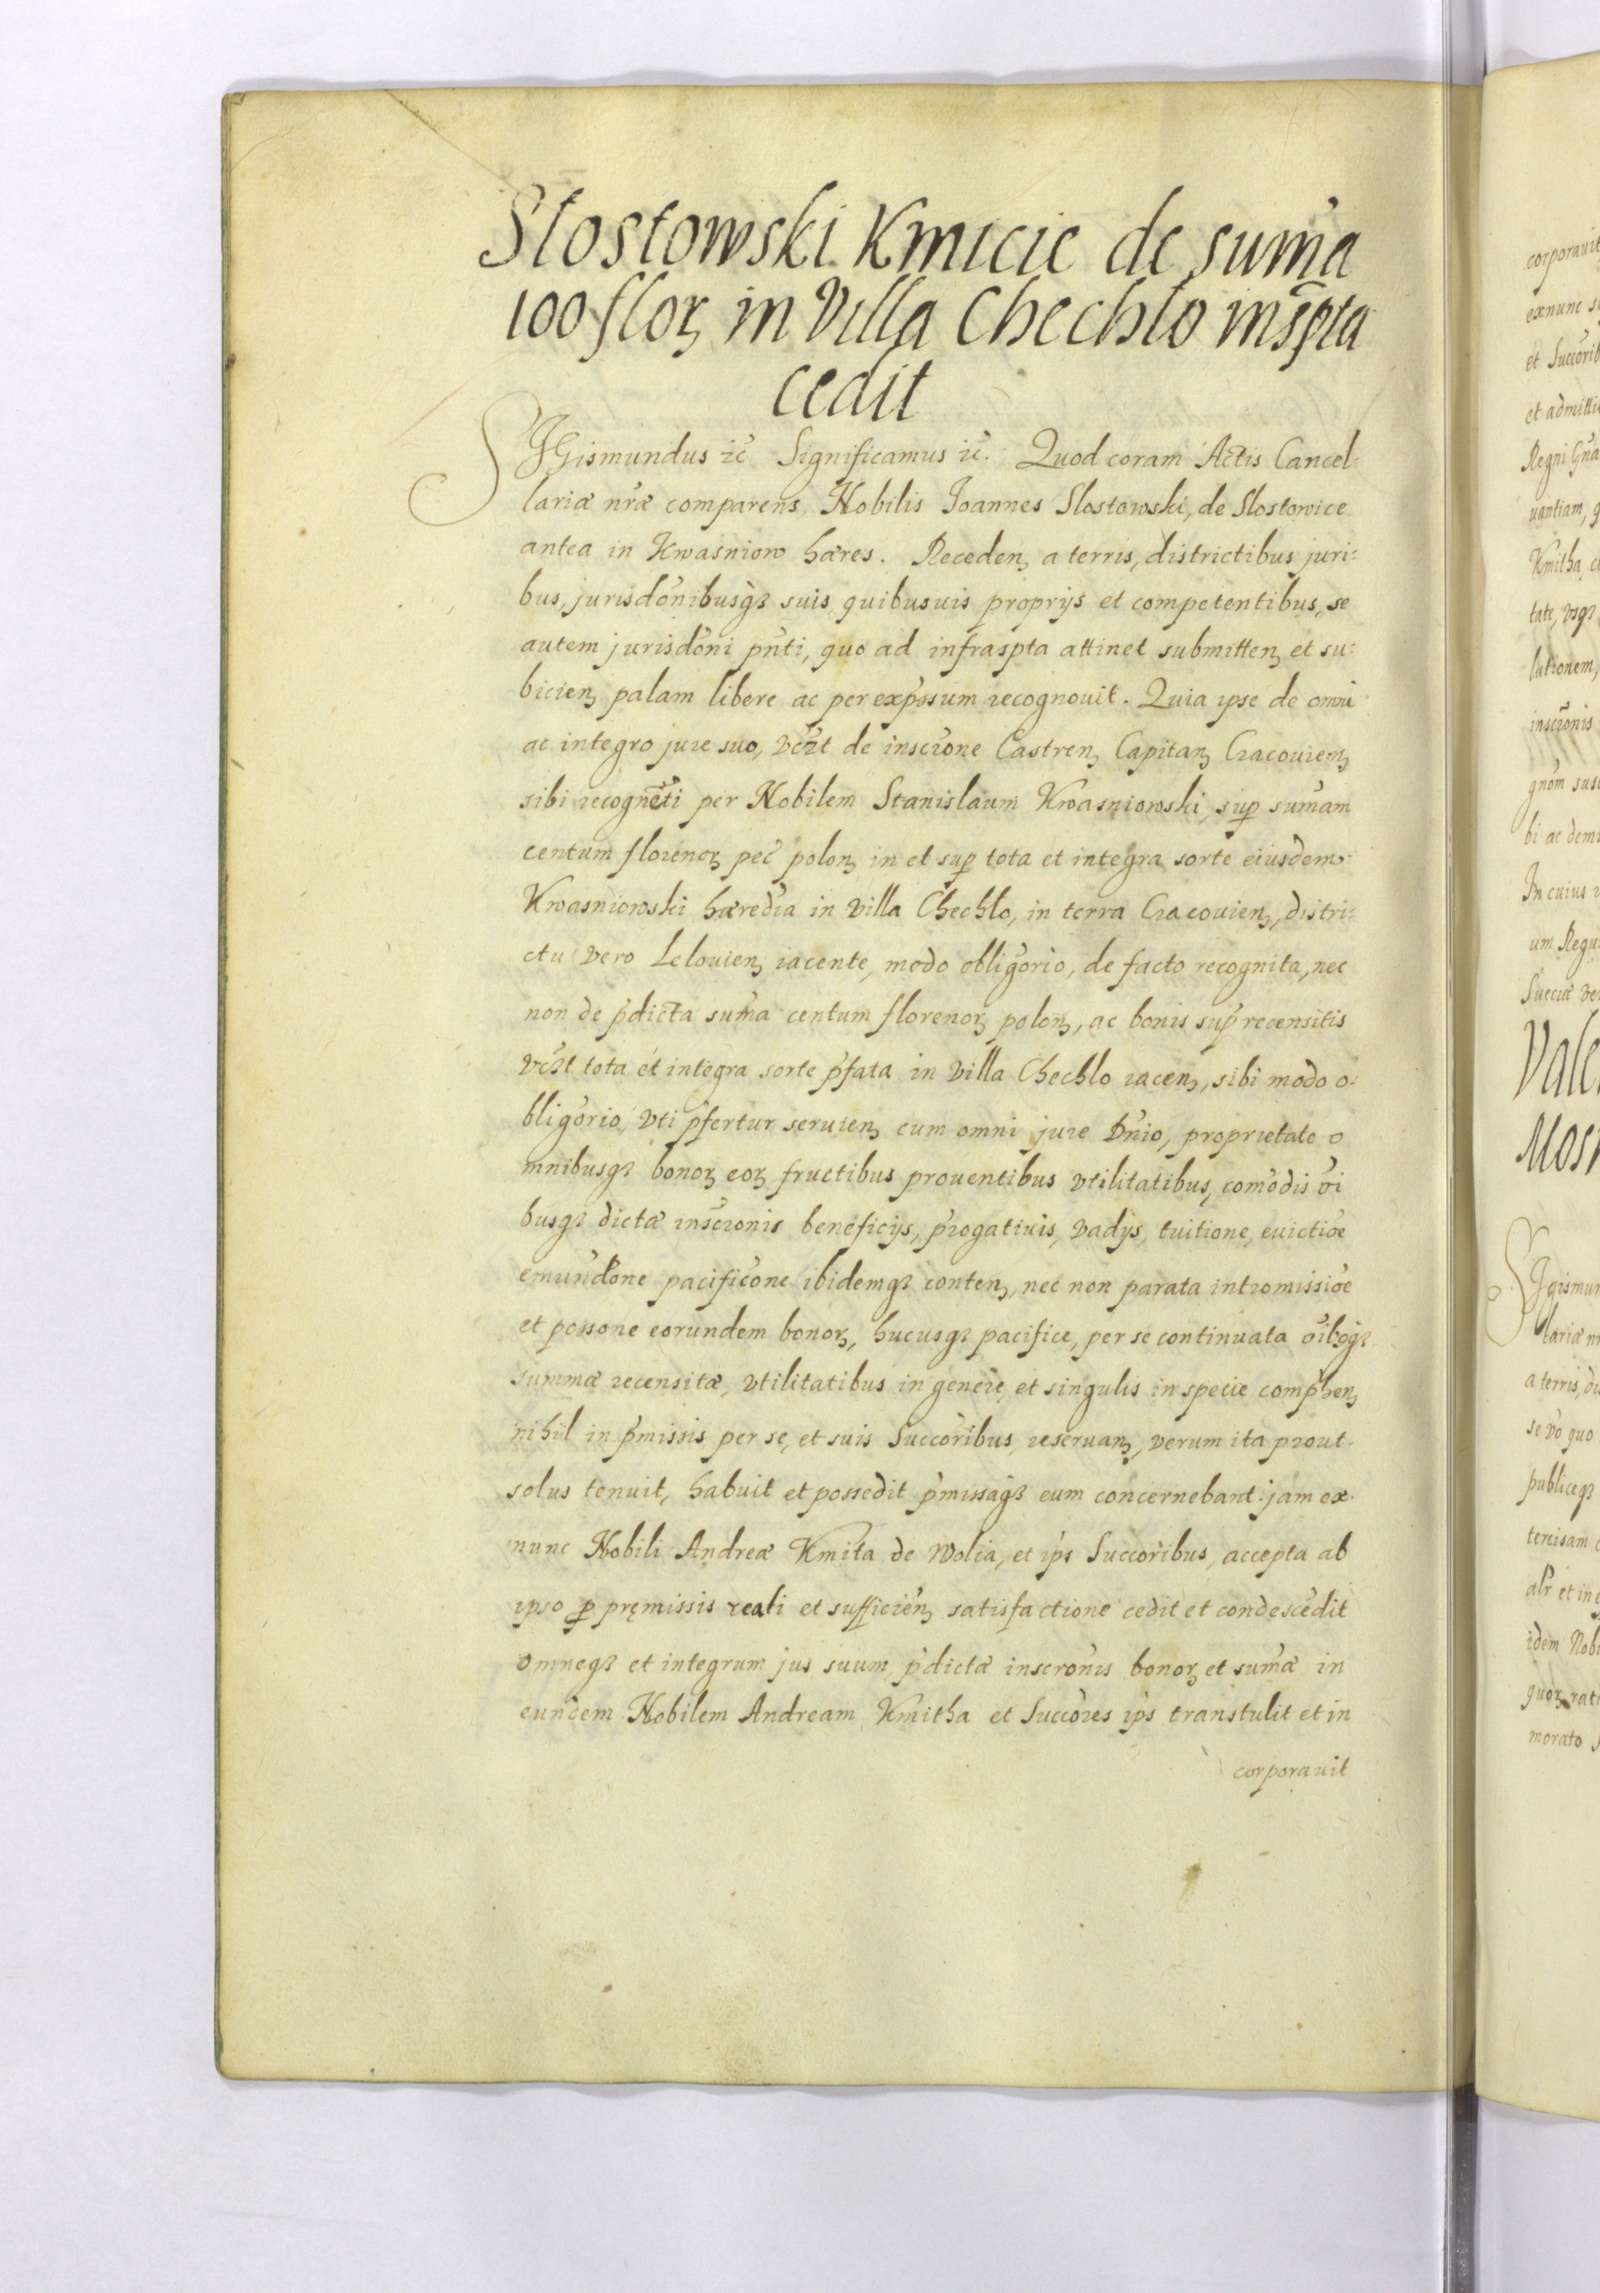 Slostowski Kmicie de suma
100 florꝫ in Villa Chechlo inspta
cedit
SIGismundus ꝛc Significamus ꝛc. Quod coram Actis Cancel-
lariæ nræ comparens Nobilis Joannes Slostowski, de Slostowice
antea in Kwasniow hæres. Recedenꝫ a terris, districtibus juri:
bus, jurisdonibusqꝫ suis quibusuis proprijs et competentibus, se
autem jurisdoni pnti, quo ad infraspta attinet submittenꝫ et su:
bicienꝫ palam libere ac per expssum recognouit. Quia ipse de omni
ac integro jure suo, vczt de inscrone Castrenꝫ Capitanꝫ Cracouienꝫ
sibi recognēti per Nobilem Stanislaum Kwasniowski, sup sumam
centum florenoꝝ pec polonꝫ in et sup tota et integra sorte eiusdem
Kwasniowski hæredia in villa Chechlo, in terra Cracouienꝫ, distri:
ctu vero Lelouienꝫ iacente, modo obligorio, de facto recognita, nec
non de pdicta suma centum florenoꝝ polonꝫ, ac bonis sup recensitis
vczt tota et integra sorte pfata in villa Chechlo iacenꝫ, sibi modo o:
bligorio, vti pfertur seruienꝫ cum omni jure Dnio, proprietate o
mnibusqꝫ bonoꝝ eoꝝ fructibus prouentibus vtilitatibus, comodis oi
busqꝫ dictæ inscronis beneficijs, progatiuis, vadijs, tuitione, euictioe
emundone pacificone ibidemqꝫ contenꝫ, nec non parata intromissioe
et possone eorundem bonoꝝ, hucusqꝫ pacifice, per se continuata oibꝫqꝫ
summæ recensitæ, vtilitatibus in genere, et singulis in specie comphenꝫ
nihil in pmissis per se, et suis Succoribus, reseruanꝫ, verum ita prout
solus tenuit, habuit et possedit pmissaqꝫ eum concernebant. jam ex
nunc Nobili Andreæ Kmita de Wolia, et ips Succoribus, accepta ab
ipso ꝓ pręmissis reali et sufficienꝫ satisfactione cedit et condescedit
omneqꝫ et integrum jus suum pdictæ inscronis bonoꝝ et sumæ in
eundem Nobilem Andream Kmitha et Succores ips transtulit et in
corporauit